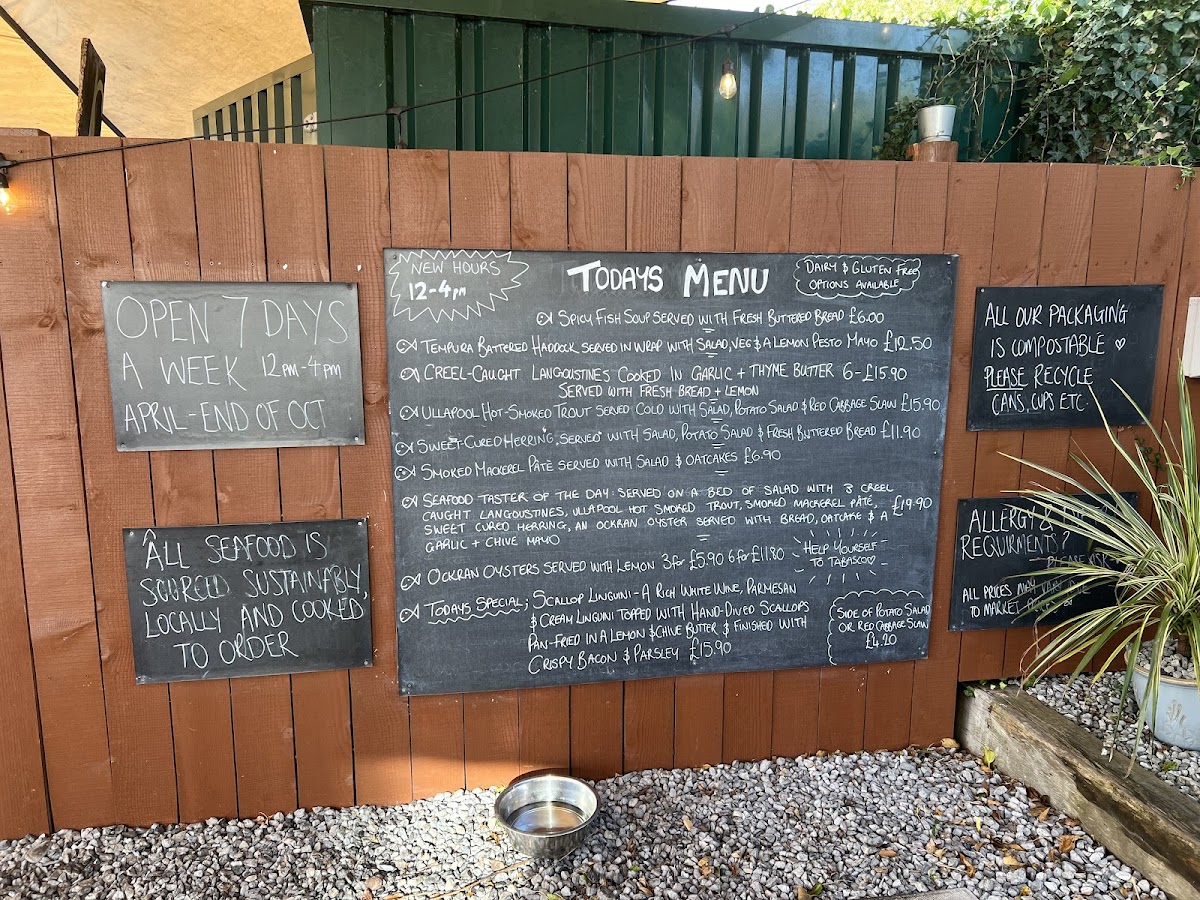 OPEN 7 DAYS
A WEEK 12PM-4PM
APRIL-END OF OCT
ALL SEAFOOD IS
SOURCED SUSTAINABLY,
LOCALLY AND COOKED
TO ORDER
NEW HOURS
12-4PM
TODAYS MENU
DAIRY & GLUTEN FREE
OPTIONS AVAILABLE
SPICY FISH SOUP SERVED WITH FRESH BUTTERED BREAD £6.00
TEMPURA BATTERED HADDOCK SERVED IN WRAP WITH SALAD, VEG & A LEMON PESTO MAYO £12.50
CREEL-CAUGHT LANGOUSTINES COOKED IN GARLIC + THYME BUTTER 6-£15.90
SERVED WITH FRESH BREAD + LEMON
ULLAPOOL HOT-SMOKED TROUT SERVED COLD WITH SALAD, POTATO SALAD & RED CABBAGE SLAW £15.90
SWEET-CURED HERRING, SERVED WITH SALAD, POTATO SALAD & FRESH BUTTERED BREAD £11.90
SMOKED MACKEREL PÂTÉ SERVED WITH SALAD & OATCAKES £6.90
SEAFOOD TASTER OF THE DAY: SERVED ON A BED OF SALAD WITH 3 CREEL
CAUGHT LANGOUSTINES, ULLAPOOL HOT SMOKED TROUT, SMOKED MACKEREL PÂTÉ, £19.90
SWEET CURED HERRING, AN OCKRAN OYSTER SERVED WITH BREAD, OATCAKE & A
GARLIC + CHIVE MAYO
OCKRAN OYSTERS SERVED WITH LEMON 3 for £5.90 6 for £11.80
HELP YOURSELF
TO TABASCO
TODAYS SPECIAL; SCALLOP LINGUINI - A RICH WHITE WINE, PARMESAN
& CREAM LINGUNI TOPPED WITH HAND-DIVED SCALLOPS
PAN-FRIED IN A LEMON & CHIVE BUTTER & FINISHED WITH
CRISPY BACON & PARSLEY £15.90
SIDE OF POTATO SALAD
OR RED CABBAGE SLAW
£4.20
ALL OUR PACKAGING
IS COMPOSTABLE
PLEASE RECYCLE
CANS, CUPS ETC.
ALLERGY &
REQUIRMENTS?
PLEASE ASK
ALL PRICES MAY VARY DUE
TO MARKET